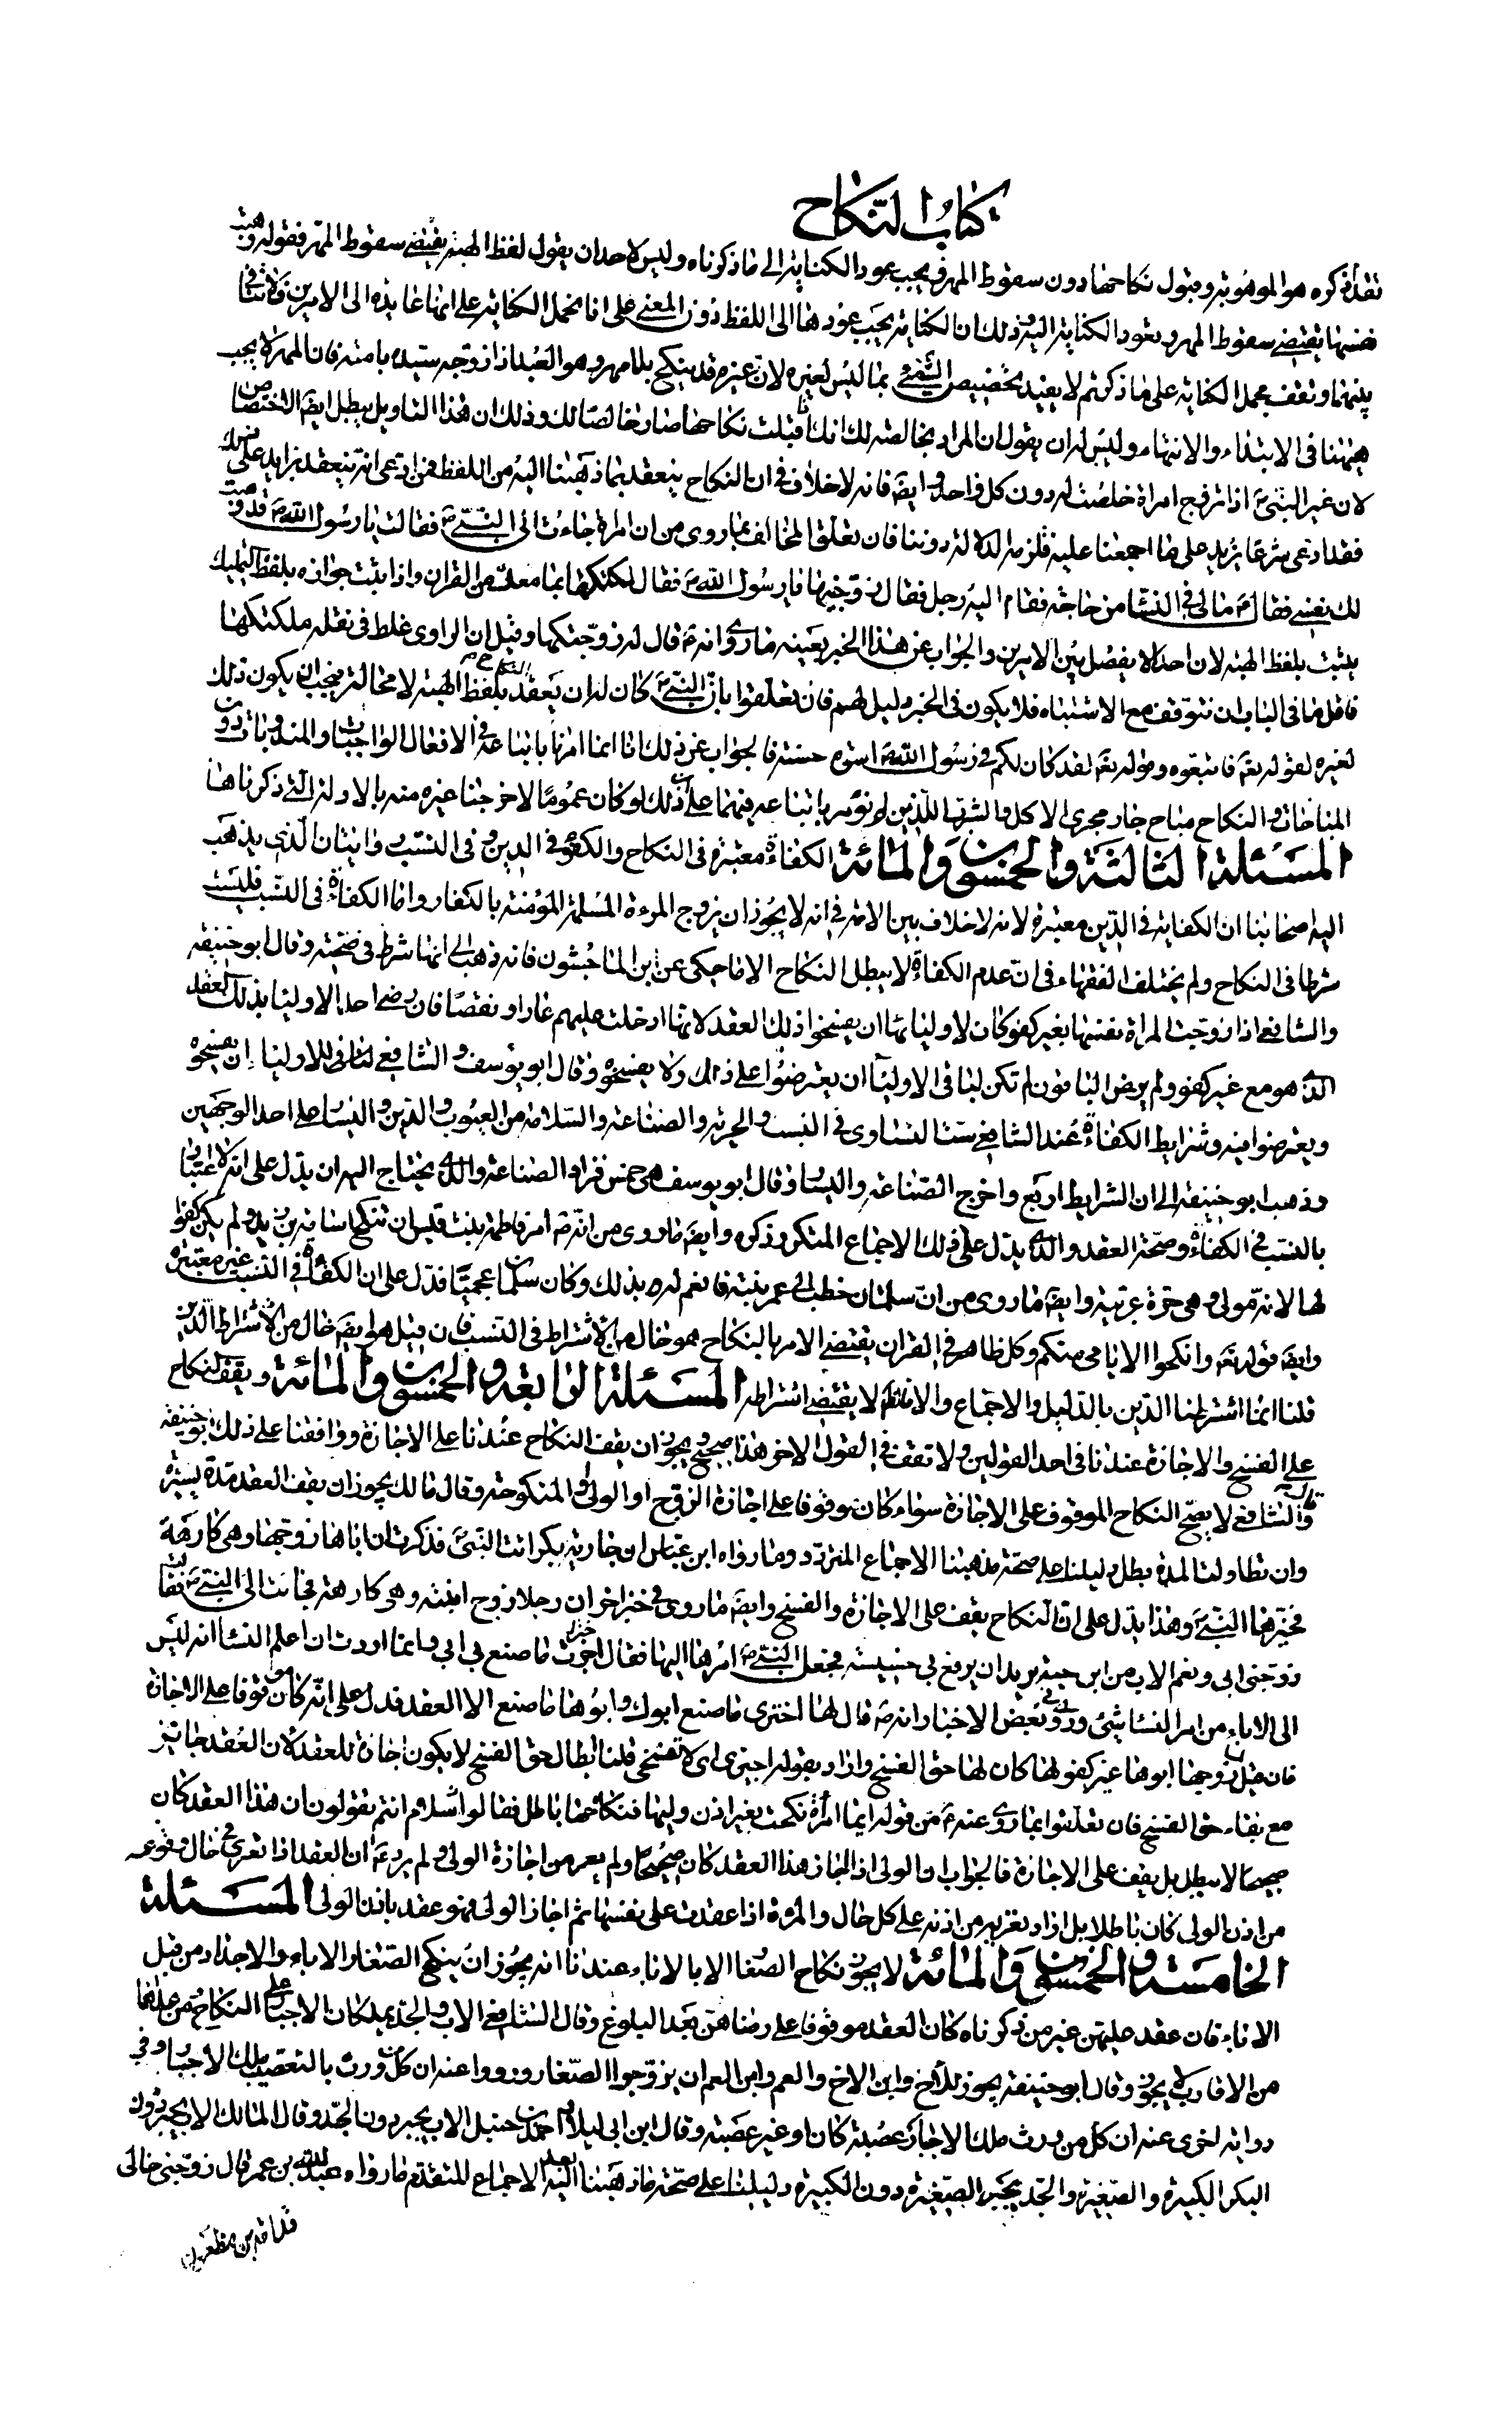 كتاب النكاح
تقدم ذكره هو الموهوبة وقبول نكاحها دون سقوط المهر فيجب عود الكناية الى ما ذكرناه وليس لاحد ان يقول لفظ الهبة يقتضي سقوط المهر فقوله وهبت
نفسها يقتضي سقوط المهر ويعود الكناية اليه وذلك ان الكناية يجب عودها الى اللفظ دون المعنى على انا نحمل الكناية على انها عايدة الى الامرين فلا تنافي
بينهما ونقف بحمل الكناية على ما ذكرتم لا يفيد تخصيص النبي بما ليس لغيره لان غيره قد ينكح بلا مهر وهو العبد اذا زوجه سيده بامته فان المهر لا يجب
هيهنا في الابتداء والانتهاء وليس له ان يقول ان المراد بخالصة لك انك اذا قبلت نكاحها صار خالصا لك وذلك ان هذا التاويل يبطل ايضا الاختصاص
لان غير النبي اذا تزوج امراة خلصت له دون كل واحد وايضا فانه لا خلاف في ان النكاح ينعقد بما ذهبنا اليه من اللفظ فمن ادعى انه ينعقد بزايد على ذلك
فقد ادعى شرعا يزيد على ما اجمعنا عليه فلزمه الدلالة دوننا فان تعلق المخالف بما روى من ان امراة جاءت الى النبي فقالت يا رسول الله قد وهبت
لك نفسي فقال مالي في النساء من حاجة فقام اليه رجل فقال زوجنيها يا رسول الله فقال ملكتكها بما معك من القران واذا ثبت جوازه بلفظ التمليك
يثبت بلفظ الهبة لان احدا لا يفصل بين الامرين والجواب عن هذا الخبر بعينه ما روى انه قال له زوجتكها وقيل ان الراوى غلط في نقله ملكتكها
فاقل ما في الباب ان نتوقف مع الاشتباه فلا يكون في الخبر دليل لهم فان تعلقوا بان النبي كان له ان يعقد النكاح بلفظ الهبة لا محالة فيجب ان يكون ذلك
لغيره لقوله تعه فاتبعوه وقوله تعه لقد كان لكم في رسول الله اسوة حسنة فالجواب عن ذلك انا انما امرنا باتباعه في الافعال الواجبات والمندوبات دون
المباحات والنكاح مباح جار مجرى الاكل والشرب اللذين لم نؤمر باتباعه فيهما على ان ذلك لو كان عموما لاخرجنا غيره منه بالادلة التي ذكرناها
المسئلة الثالثة والخمسون والمائة الكفاءة معتبرة في النكاح والكفو في الدين وفي النسب وايتان الذي يذهب
اليه اصحابنا ان الكفاية في الدين معتبرة لانه لا خلاف بين الامة في انه لا يجوز ان يزوج المرءة المسلمة المؤمنة بالكفار واما الكفاءة في النسب فليست
شرطا في النكاح ولم يختلف الفقهاء في ان عدم الكفاءة لا يبطل النكاح الا ما حكى عن ابن الماجشون فانه ذهب الى انها شرط في صحته وقال ابو حنيفة
والشافعي اذا زوجت المراة نفسها بغير كفو كان لاوليائها ان يفسخوا ذلك العقد لانها ادخلت عليهم عارا ونقصا فان رضى احد الاوليا بذلك العقد
الذي هو مع غير كفو ولم يرض الباقون لم تكن لباقي الاوليا ان يعترضوا على ذلك ولا يفسخوه وقال ابو يوسف والشافعي لباقي الاوليا ان يفسخوه
ويعترضوا فيه وشرايط الكفاءة عند الشافعي ست التساوى في النسب والحرية والصناعة والسلامة من العيوب والدين واليسار على احد الوجهين
وذهب ابو حنيفة الى ان الشرايط اربع واخرج الصناعة واليسار وقال ابو يوسف هي خمس فزاد الصناعة والذي يحتاج اليه ان يدل على انه لا اعتبار
بالنسب في الكفاءة وصحة العقد والذي يدل على ذلك الاجماع المتكرر ذكره وايضا ما روى من انه امر فاطمة بنت قيس ان تنكح اسامة بن زيد ولم يكن كفوا
لها لانه مولى وهي حرة عربية وايضا ما روى من ان سلمان خطب الى عمر بنته فانعم له بذلك وكان سلمان عجميا فدل على ان الكفاءة في النسب غير معتبرة
وايضا قوله تعه وانكحوا الايامى منكم وكل ظاهر في القران يقتضي الامر بالنكاح هو خال من الاشتراط في النسب فان قيل هو ايضا خال من الاشتراط الدين
قلنا انما اشترطنا الدين بالدليل والاجماع والا فالظاهر لا يقتضي اشتراطه المسئلة الرابعة والخمسون والمائة ويقف النكاح
على الفسخ والاجازة عندنا في احد القولين ولا تقف في القول الاخر هذا صحيح ويجوز ان يقف النكاح عندنا على الاجازة ووافقنا على ذلك ابو حنيفة
وقال الشافعي لا يصح النكاح الموقوف على الاجازة سواء كان موقوفا على اجازة الزوج او الولي او المنكوحة وقال مالك يجوز ان يقف العقد مدة يسيرة
وان تطاولت المدة بطل دليلنا على صحة مذهبنا الاجماع المتردد وما رواه ابن عباس ان جارية بكرا اتت النبي فذكرت ان اباها زوجها وهي كارهة
فخيرها النبي وهذا يدل على ان النكاح يقف على الاجازة والفسخ وايضا ما روى في خبر اخر ان رجلا زوج ابنته وهي كارهة فجائت الى النبي فقالت
زوجني ابي ونعم الاب من ابن اخيه يريد ان يرفع بي خسيسته فجعل النبي امرها اليها فقالت اجزت ما صنع بي ابي وانما اردت ان اعلم النساء انه ليس
الى الاباء من امر النساء شئ وروى في بعض الاخبار انه قال لها اختري فاصنع ابوك وابوها ما صنع الا العقد فدل على انه كان موقوفا على الاجازة
فان قيل زوجها ابوها غير كفو لها كان لها حق الفسخ واراد بقوله اجيزى اى لا تفسخي قلنا ابطال حق الفسخ لا يكون اجازة للعقد لان العقد جايز
مع بقاء حق الفسخ فان تعلقوا بما روى عنه من قوله ايما امرأة نكحت بغير اذن وليها فنكاحها باطل فقالوا انتم تقولون ان هذا العقد كان
صحيحا لا يبطل بل يقف على الاجازة فالجواب ان الولي اذا اجاز هذا العقد كان صحيحا ولم يعر من اجازة الولي ولم يرد ان العقد اذا تعرى في حال وقوعه
من اذن الولي كان باطلا بل اراد تعريه من اذنه على كل حال والمرءة اذا عقدت على نفسها ثم اجاز الولي فهو عقد باذن الولي المسئلة
الخامسة والخمسون والمائة لا يجوز نكاح الصغار الا بالاباء عندنا انه يجوز ان ينكح الصغار الاباء والاجداد من قبل
الاباء فان عقد عليهن غير من ذكرناه كان العقد موقوفا على رضاهن بعد البلوغ وقال الشافعي الاب والجد يملكان الاجبار على النكاح ومن عداهما
من الاقارب لا يجوز وقال ابو حنيفة يجوز للاخ وابن الاخ والعم وابن العم ان يزوجوا الصغار ورووا عنه ان كل من ورث بالتعصيب ملك الاجبار وفي
رواية اخرى عنه ان كل من يرث ملك الاجبار عصبة كان او غير عصبة وقال ابن ابي ليلى واحمد بن حنبل الاب يجبر دون الجد وقال مالك الاب يجبر دون
البكر الكبيرة والصغيرة والجد يجبر الصغيرة دون الكبيرة دليلنا على صحة ما ذهبنا اليه بعد الاجماع المتقدم ما رواه عبد الله بن عمر قال زوجني خالى
قدامة بن مظعون